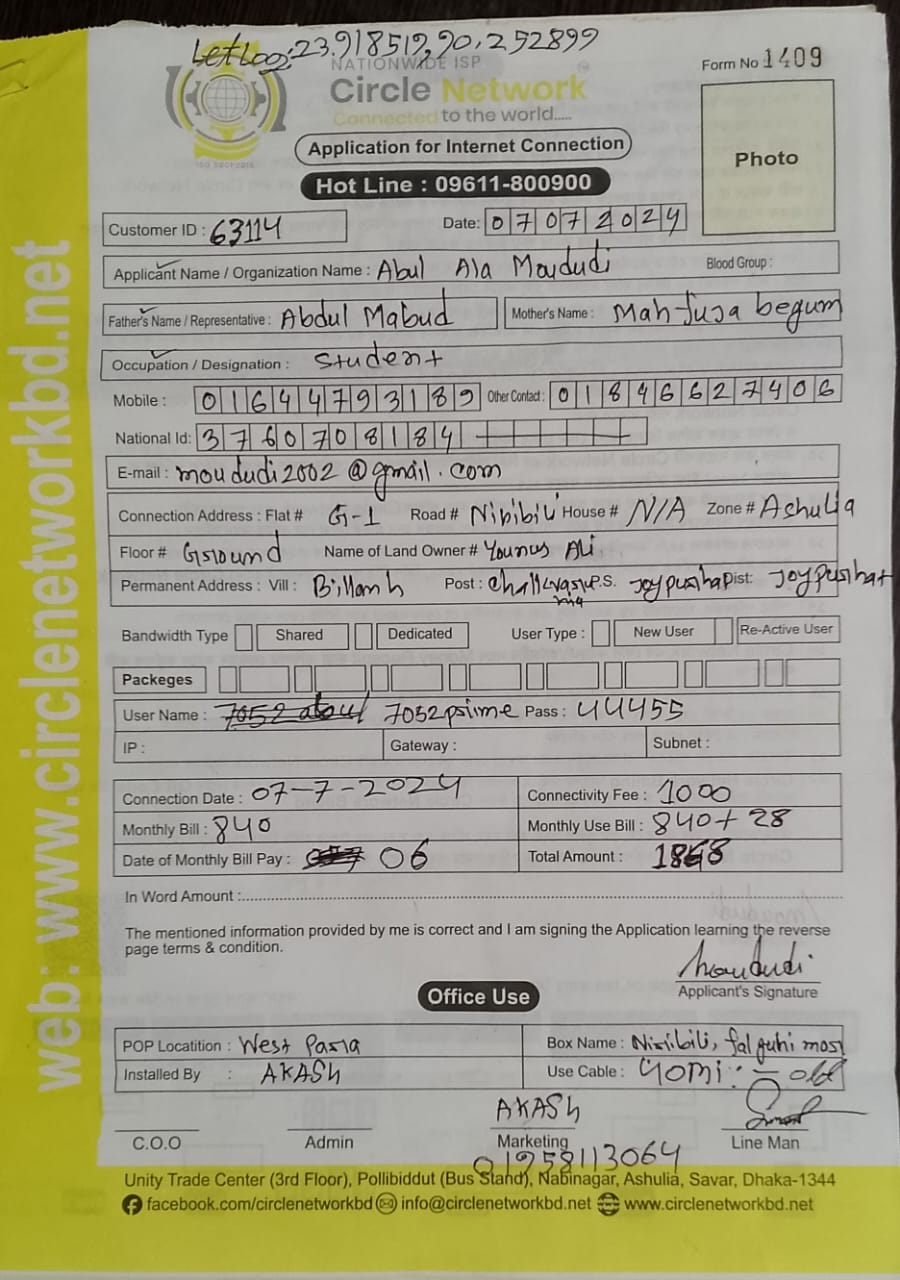 Let Log: 23.918519, 90.252899
NATIONWIDE ISP
Form No 1409
Circle Network
Connected to the world.....
Application for Internet Connection
Photo
Hot Line : 09611-800900
Customer ID : 63114 Date: 07072024
Applicant Name / Organization Name : Abul Ala Moududi Blood Group :
Father's Name / Representative : Abdul Mabud Mother's Name : Mahfuja begum
Occupation / Designation : Student
Mobile : 01644793189 Other Contact : 01846627406
National Id: 3760708184
E-mail : moududi2002@gmail.com
Connection Address : Flat # G-1 Road # Niribili House # N/A Zone # Ashulia
Floor # Ground Name of Land Owner # Younus Ali
Permanent Address : Vill : Post : P.S. Joypurhat Dist: Joypurhat
Bandwidth Type Shared Dedicated User Type : New User Re-Active User
Packeges
User Name : 7052 abul 7052prime Pass : 44455
IP : Gateway : Subnet :
Connection Date : 07-7-2024 Connectivity Fee : 1000
Monthly Bill : 840 Monthly Use Bill : 840+28
Date of Monthly Bill Pay : 06 Total Amount : 1868
In Word Amount :
The mentioned information provided by me is correct and I am signing the Application learning the reverse
page terms & condition.
Moududi
Applicant's Signature
Office Use
POP Locatition : West Para Box Name : Niribili,
Installed By : AKASH Use Cable :
AKASH
C.O.O Admin Marketing Line Man
01958113064
Unity Trade Center (3rd Floor), Pollibiddut (Bus Stand), Nabinagar, Ashulia, Savar, Dhaka-1344
facebook.com/circlenetworkbd info@circlenetworkbd.net www.circlenetworkbd.net
web: www.circlenetworkbd.net